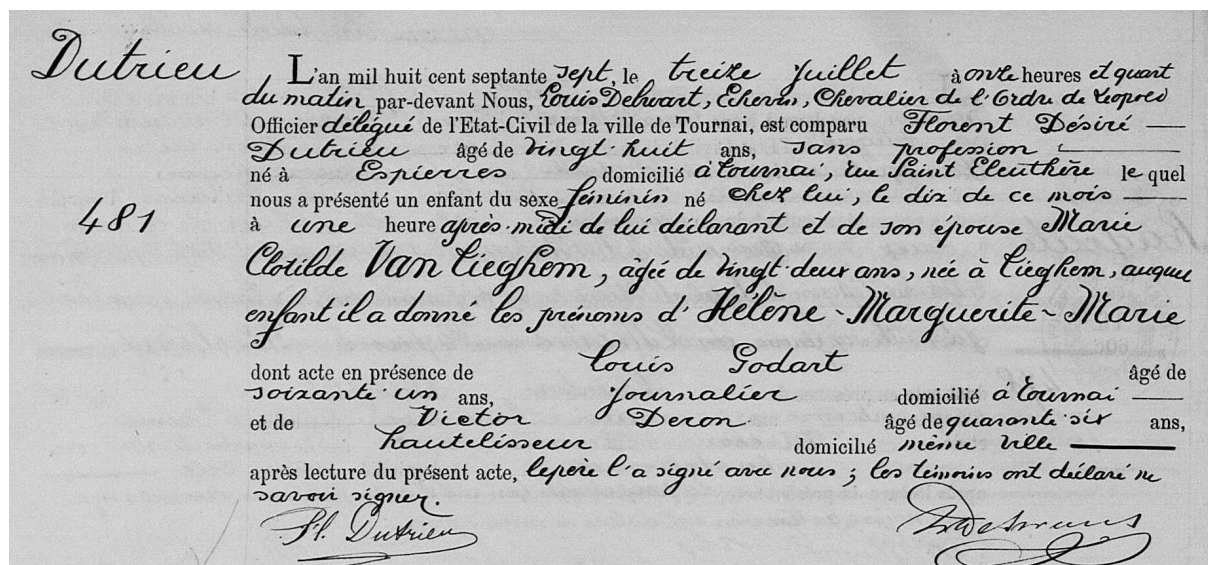 Dutrieu
481
L'an mil huit cent septante sept, le treize Juillet à onze heures et quart
du matin par-devant Nous, Louis Delwart, Echevin, Chevalier de l'Ordre de Léopold
Officier délégué de l'Etat-Civil de la ville de Tournai, est comparu Florent Désiré
Dutrieu âgé de vingt-huit ans, sans profession
né à Espierres domicilié à Tournai, rue Saint Eleuthère le quel
nous a présenté un enfant du sèxe féminin né chez lui, le dix de ce mois
à une heure après-midi de lui déclarant et de son épouse Marie
Clotilde Van Tieghem, âgée de vingt-deux ans, née à Tieghem, auquel
enfant il a donné les prénoms d'Hélène-Marguerite-Marie
dont acte en présence de Louis Godart âgé de
soixante un ans, Journalier domicilié à Tournai
et de Victor Deron âgé de quarante six ans,
hautelisseur domicilié même ville
après lecture du présent acte, le père l'a signé avec nous ; les témoins ont déclaré ne
savoir signer.
Fl. Dutrieu